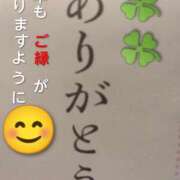 ありがとう
も ご縁 が
りますように